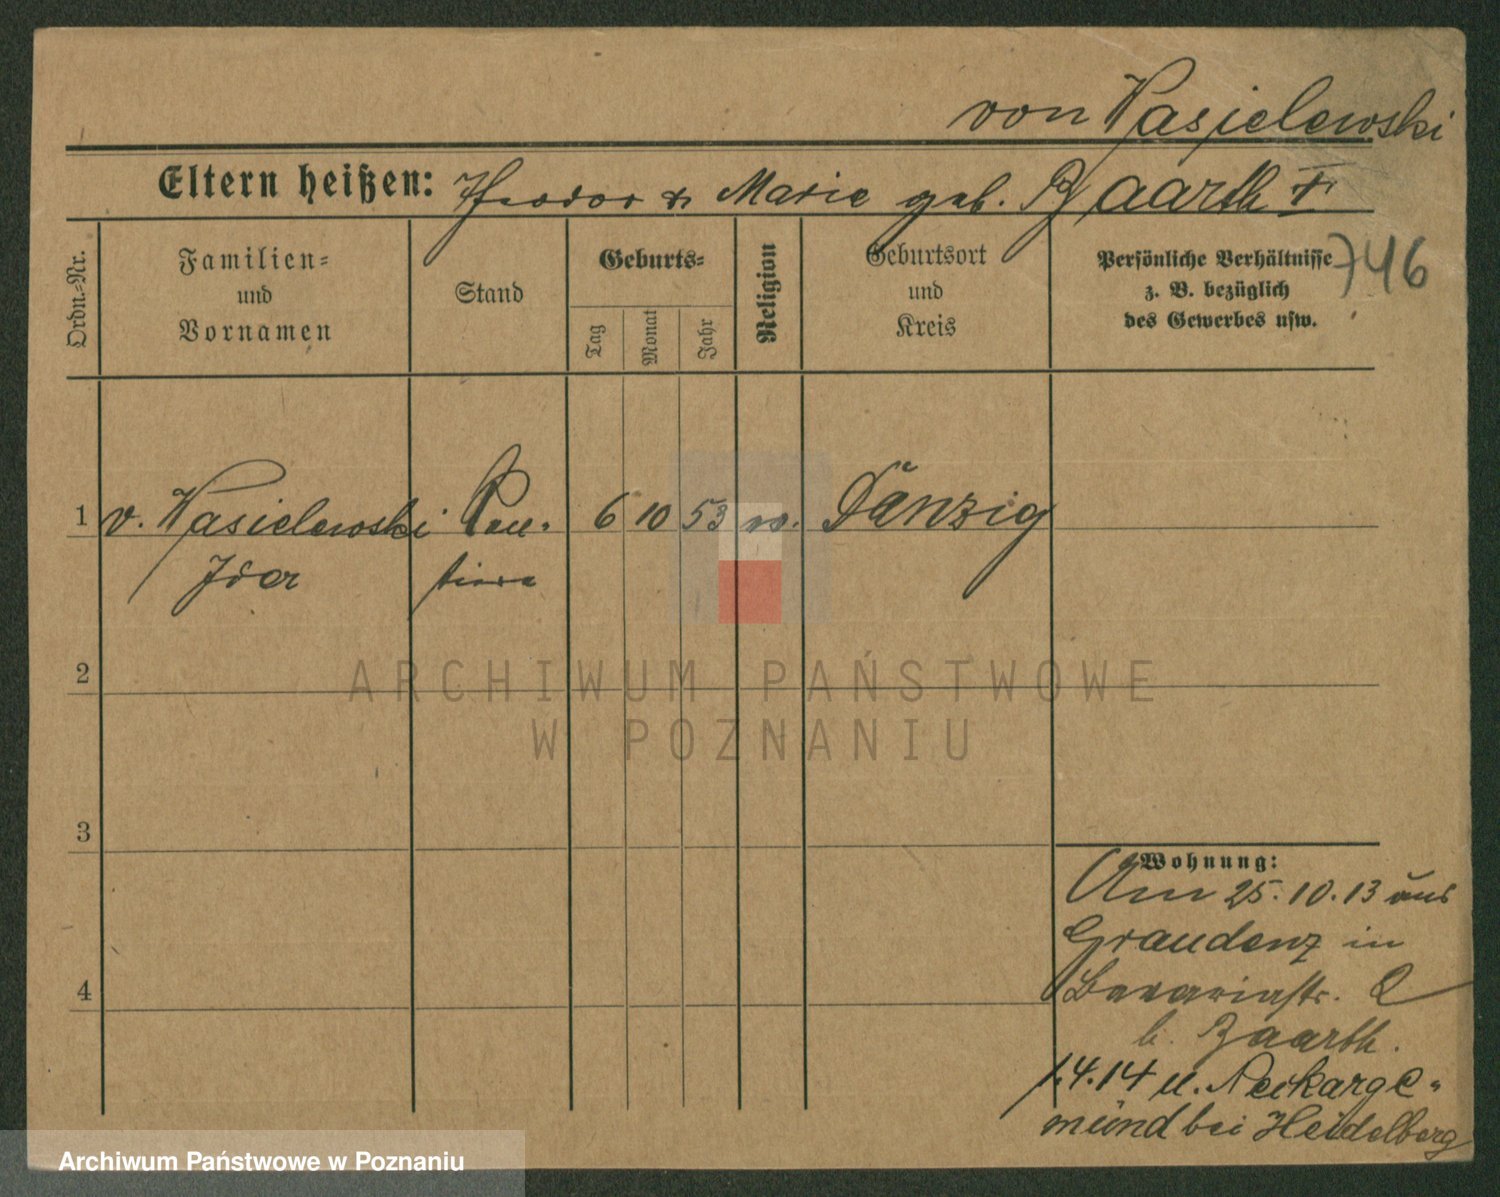 von Wasielewski
Eltern heißen: Theodor & Marie geb. Baarth †
Ordn.-Nr.
Familien-
und
Vornamen
Stand
Geburts-
Tag
Monat
Jahr
Religion
Geburtsort
und
Kreis
Persönliche Verhältnisse
z. B. bezüglich
des Gewerbes usw.
746
1 v. Wasielewski Ren- 6 10 53 ev. Danzig
Ida tiere
2
3
4
Wohnung:
Am 25.10.13 aus
Graudenz in
Bavariastr.
b. Baarth.
1.4.14 n. Neckarge-
münd bei Heidelberg
ARCHIWUM PAŃSTWOWE
W POZNANIU
Archiwum Państwowe w Poznaniu